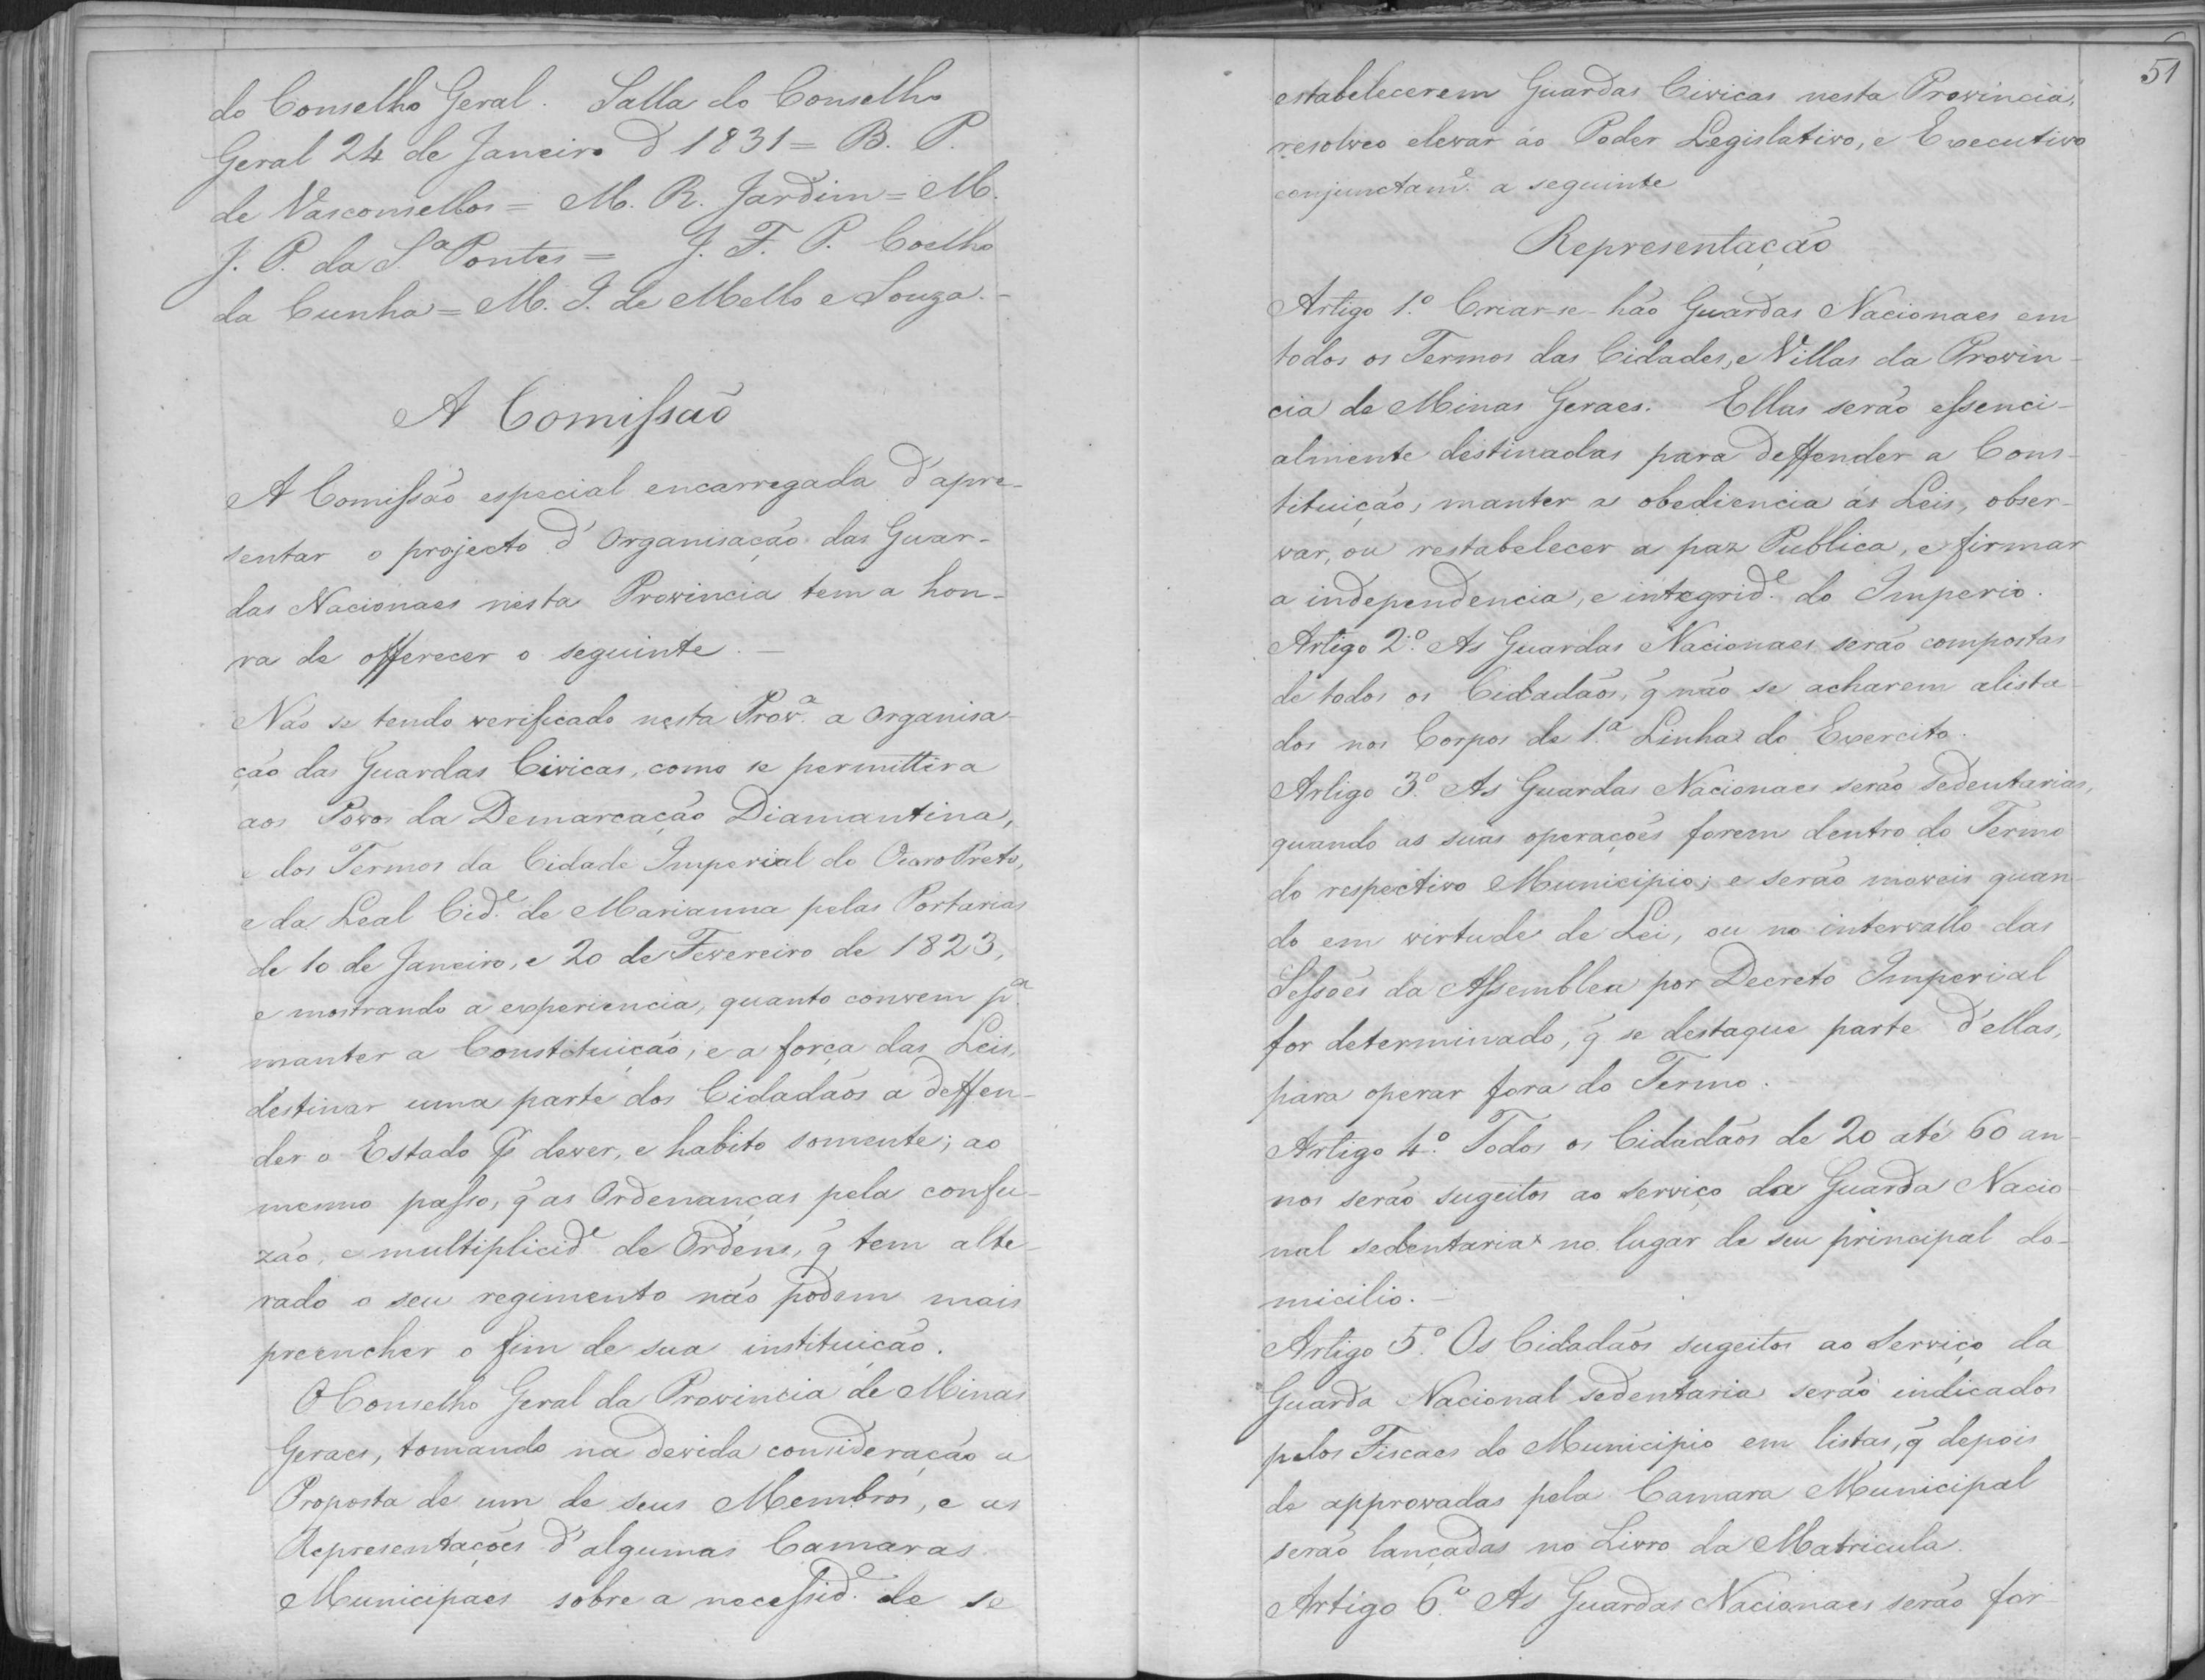 do Conselho Geral. Salla do Conselho
Geral 24 de Janeiro d 1831 = B. P.
de Vasconsellos = M. R. Jardim = M.
J. P. da Sª Pontes = J. F. P. Coelho
da Cunha = M. I. de Mello e Souza. -
A Comissão
A Comissão especial encarregada d'apre-
sentar o projecto d'Organisação das Guar-
das Nacionaes nesta Provincia tem a hon-
ra de offerecer o seguinte. -
Não se tendo verificado nesta Provª. a organisa-
ção das Guardas Civicas, como se permittira
aos Povos da Demarcação Diamantina,
e dos Termos da Cidade Imperial do Ouro Preto,
e da Leal Cidᵉ. de Marianna pelas Portarias
de 10 de Janeiro, e 20 de Fevereiro de 1823,
e mostrando a experiencia, quanto convem pª.
manter a Constituição, e a força das Leis,
destinar uma parte dos Cidadãos a deffen-
der o Estado p dever, e habito somente; ao
mesmo passo, q̃ as Ordenanças pela confu-
zão, e multiplicidᵉ de Ordens, q̃ tem alte-
rado o seu regimento não podem mais
preencher o fim de sua instituição.
O Conselho Geral da Provincia de Minas
Geraes, tomando na devida consideração a
Proposta de um de seus Membros, e as
Representações d'algumas Camaras
Municipaes sobre a necessidᵉ. de se
51
estabelecerem Guardas Civicas nesta Provincia,
resolveo elevar ao Poder Legislativo, e Executivo
conjunctamᵉ. a seguinte
Representação
Artigo 1º. Criar-se-hão Guardas Nacionaes em
todos os Termos das Cidades, e Villas da Provin-
cia de Minas Geraes. Ellas serão essenci-
almente destinadas para deffender a Cons-
tituição, manter a obediencia ás Leis, obser-
var, ou restabelecer a paz Publica, e firmar
a independencia, e integridᵉ. do Imperio.
Artigo 2º. As Guardas Nacionaes serão compostas
de todos os Cidadãos, q̃ não se acharem alista-
dos nos Corpos de 1ª. Linha do Exercito.
Artigo 3º. As Guardas Nacionaes serão sedentarias,
quando as suas operações forem dentro do Termo
do respectivo Municipio; e serão moveis quan-
do em virtude de Lei, ou no intervallo das
Sessões da Assemblea por Decreto Imperial
for determinado, q̃ se destaque parte d'ellas,
para operar fora do Termo.
Artigo 4º. Todos os Cidadãos de 20 até 60 an-
nos serão sugeitos ao serviço da Guarda Nacio-
nal sedentaria no lugar de seu principal do-
micilio. -
Artigo 5º. Os Cidadãos sugeitos ao Serviço da
Guarda Nacional sedentaria serão indicados
pelos Fiscaes do Municipio em listas, q̃ depois
de approvadas pela Camara Municipal
serão lançadas no Livro da Matricula.
Artigo 6º. As Guardas Nacionaes serão for-